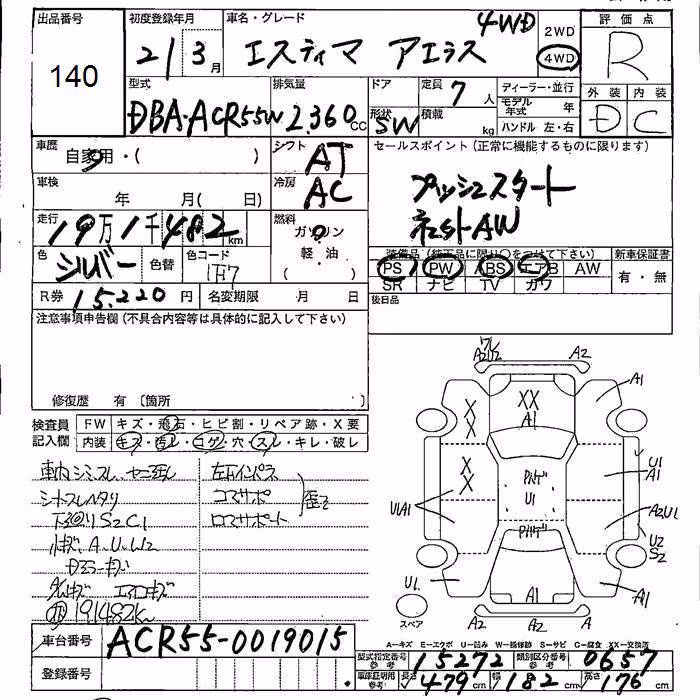 出品番号
140
初度登録年月
21 3 月
車名・グレード
エスティマ アエラス 4WD
2WD
4WD
評価点
R
外装 内装
D C
型式
DBA-ACR55W
排気量
2,360 CC
ドア
形状
SW
定員
7 人
積載
kg
ディーラー・並行
モデル年式 年
ハンドル 左・右
車歴
自家用・( )
シフト
AT
車検
年 月( 日)
冷房
AC
セールスポイント(正常に機能するものに限ります)
プッシュスタート
社外AW
走行
19万1千482 km
燃料
ガソリン
軽・油
色
シルバー
色替
色コード
1F7
装備品(純正品に限り○をつけて下さい)
PS PW ABS エアB AW
SR ナビ TV カワ
新車保証書
有・無
R券 15,220 円
名変期限 月 日
後日品
注意事項申告欄(不具合内容等は具体的に記入して下さい)
修復歴 有〔箇所
検査員記入欄
FW キズ・飛石・ヒビ割・リペア跡・X要
内装 キズ・汚レ・コゲ・穴・スレ・キレ・破レ
シートスレヘタリ
下回りS2C1
小キズ、A、U、W2
191482km
左インパネ
コアサポ
A2 A2
A1
XX
A1
X
X
X
X
U1A1
U1
A1
U1
A2U1
U2
S2
U1
A1
A1
A2 A2 A
スペア
A=キズ E=エクボ U=凹み W=補修跡 S=サビ C=腐食 XX=交換済
車台番号
ACR55-0019015
登録番号
型式指定番号 参考
15272
類別区分番号 参考
0657
車庫証明用 参考
長さ 479 cm 幅 182 cm 高さ 176 cm